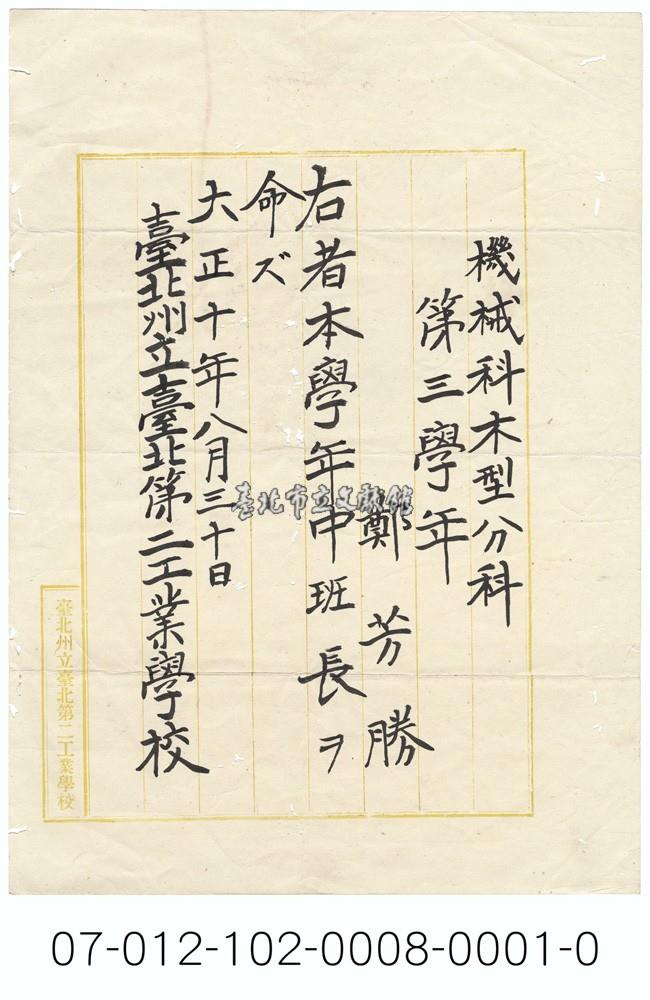 機械科木型分科
第三學年
鄭芳勝
右者本學年中班長ヲ
命ズ
大正十年八月三十日
臺北州立臺北第二工業學校
臺北州立臺北第二工業學校
臺北市立文獻館
07-012-102-0008-0001-0